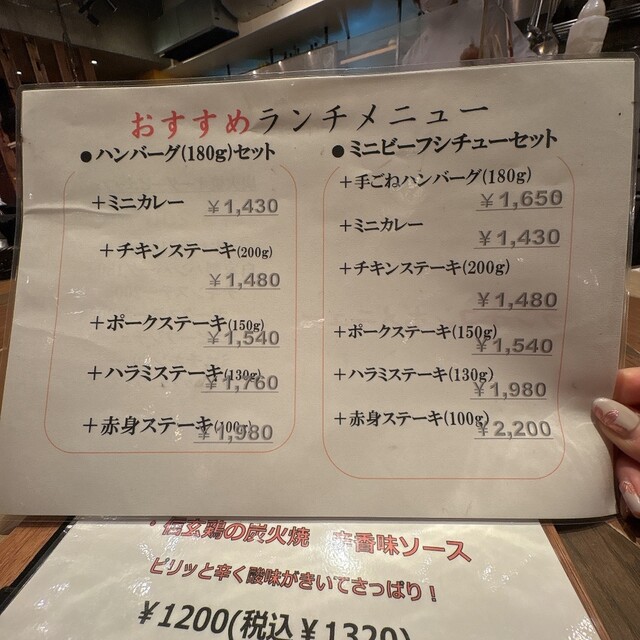 おすすめランチメニュー
●ハンバーグ(180g)セット
＋ミニカレー ￥1,430
＋チキンステーキ(200g)
￥1,480
＋ポークステーキ(150g)
￥1,540
＋ハラミステーキ(130g)
￥1,760
＋赤身ステーキ(100g)
￥1,980
●ミニビーフシチューセット
＋手ごねハンバーグ(180g)
￥1,650
＋ミニカレー
￥1,430
＋チキンステーキ(200g)
￥1,480
＋ポークステーキ(150g)
￥1,540
＋ハラミステーキ(130g)
￥1,980
＋赤身ステーキ(100g)
￥2,200
・信玄鶏の炭火焼 辛香味ソース
ピリッと辛く酸味がきいてさっぱり！
￥1200(税込￥1320)